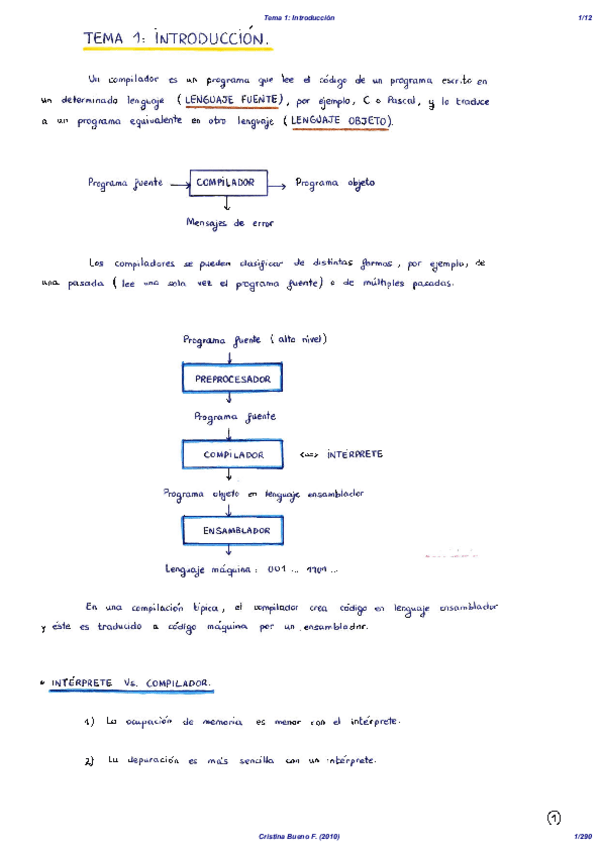 Tema 1: Introducción 1/12
TEMA 1: INTRODUCCIÓN.
Un compilador es un programa que lee el código de un programa escrito en
un determinado lenguaje (LENGUAJE FUENTE), por ejemplo, C o Pascal, y lo traduce
a un programa equivalente en otro lenguaje (LENGUAJE OBJETO).
Programa fuente → COMPILADOR → Programa objeto
Mensajes de error
Los compiladores se pueden clasificar de distintas formas, por ejemplo, de
una pasada (lee una sola vez el programa fuente) o de múltiples pasadas.
Programa fuente (alto nivel)
PREPROCESADOR
Programa fuente
COMPILADOR <==> INTÉRPRETE
Programa objeto en lenguaje ensamblador
ENSAMBLADOR
Lenguaje máquina: 001 ... 1101 ...
En una compilación típica, el compilador crea código en lenguaje ensamblador
y éste es traducido a código máquina por un ensamblador.
* INTÉRPRETE Vs. COMPILADOR.
1) La ocupación de memoria es menor con el intérprete.
2) La depuración es más sencilla con un intérprete.
1
Cristina Bueno F. (2010) 1/290